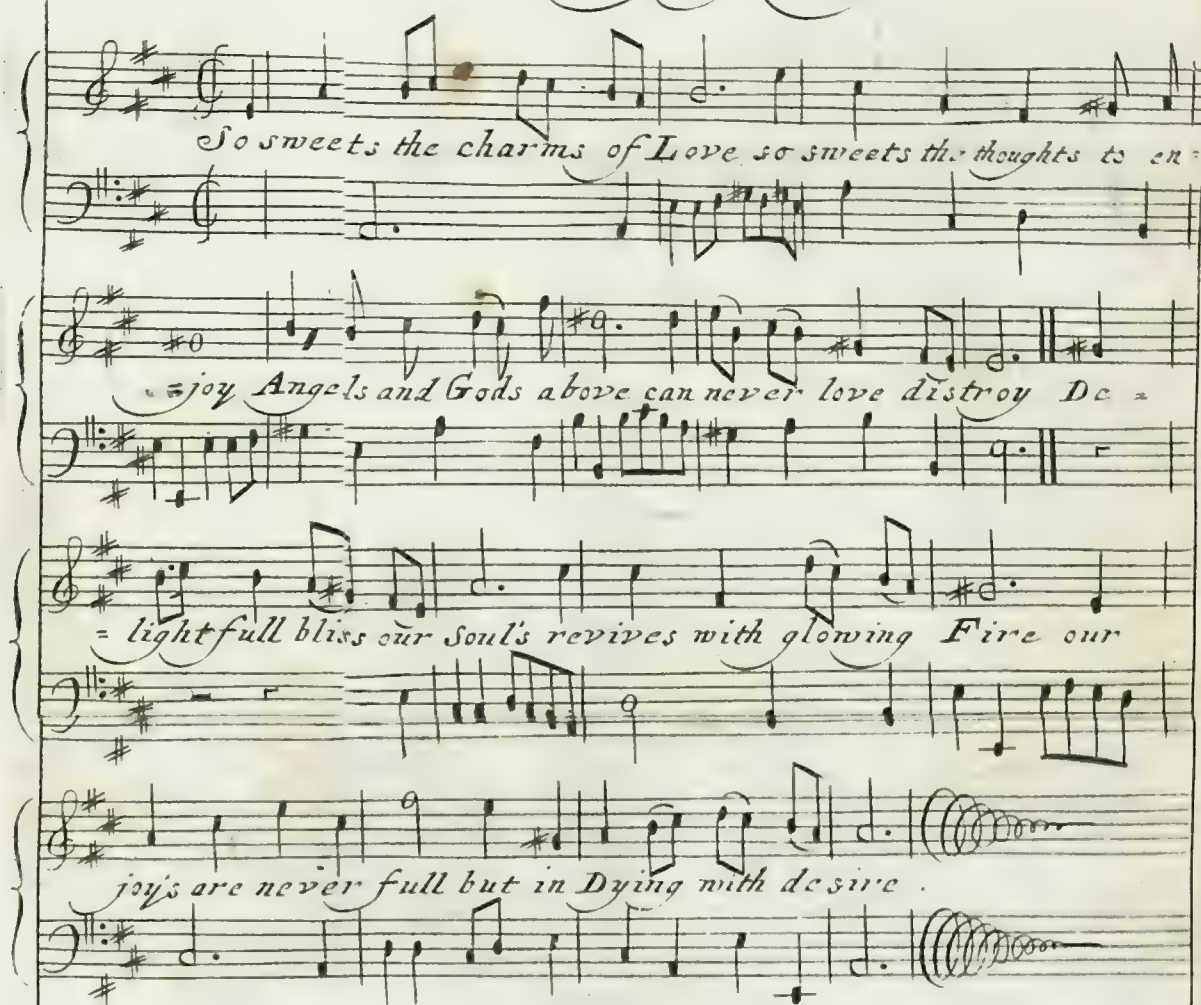 So sweets the charms of Love so sweets the thoughts to en=
=joy Angels and Gods above can never love distroy De=
=lightfull bliss our Soul's revives with glowing Fire our
joy's are never full but in Dying with desire.